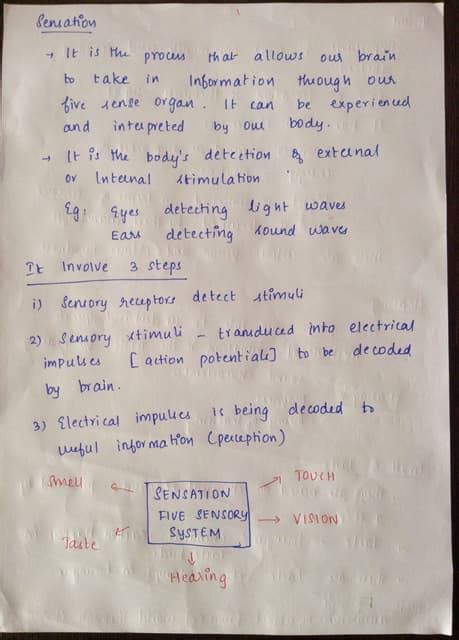 Sensation
→ It is the process that allows our brain
to take in Information through our
five sense organ. It can be experienced
and interpreted by our body.
→ It is the body's detection of external
or Internal stimulation
Eg: Eyes detecting light waves
Ears detecting sound waves
It Involve 3 steps
i) Sensory receptors detect stimuli
2) Sensory stimuli - transduced into electrical
impulses [action potentials] to be decoded
by brain.
3) Electrical impulses is being decoded to
useful information (perception)
Smell ← SENSATION → TOUCH
FIVE SENSORY → VISION
Taste ← SYSTEM
↓
Hearing